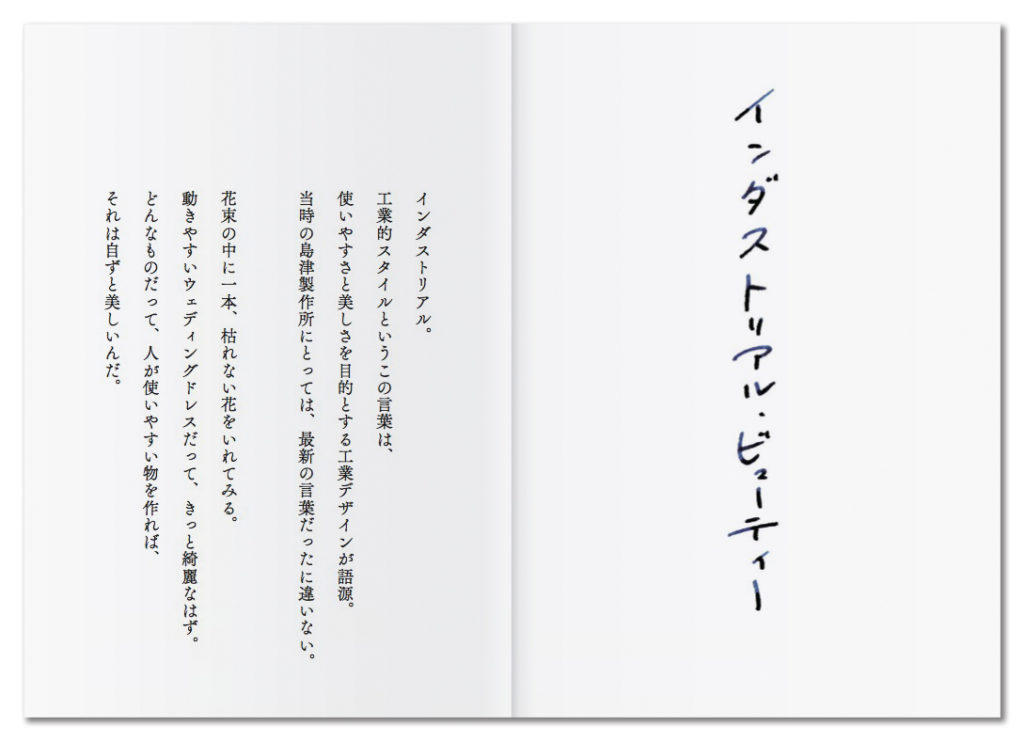 インダストリアル・ビューティー
インダストリアル。
工業的スタイルというこの言葉は、
使いやすさと美しさを目的とする工業デザインが語源。
当時の島津製作所にとっては、最新の言葉だったに違いない。
花束の中に一本、枯れない花をいれてみる。
動きやすいウェディングドレスだって、きっと綺麗なはず。
どんなものだって、人が使いやすい物を作れば、
それは自ずと美しいんだ。